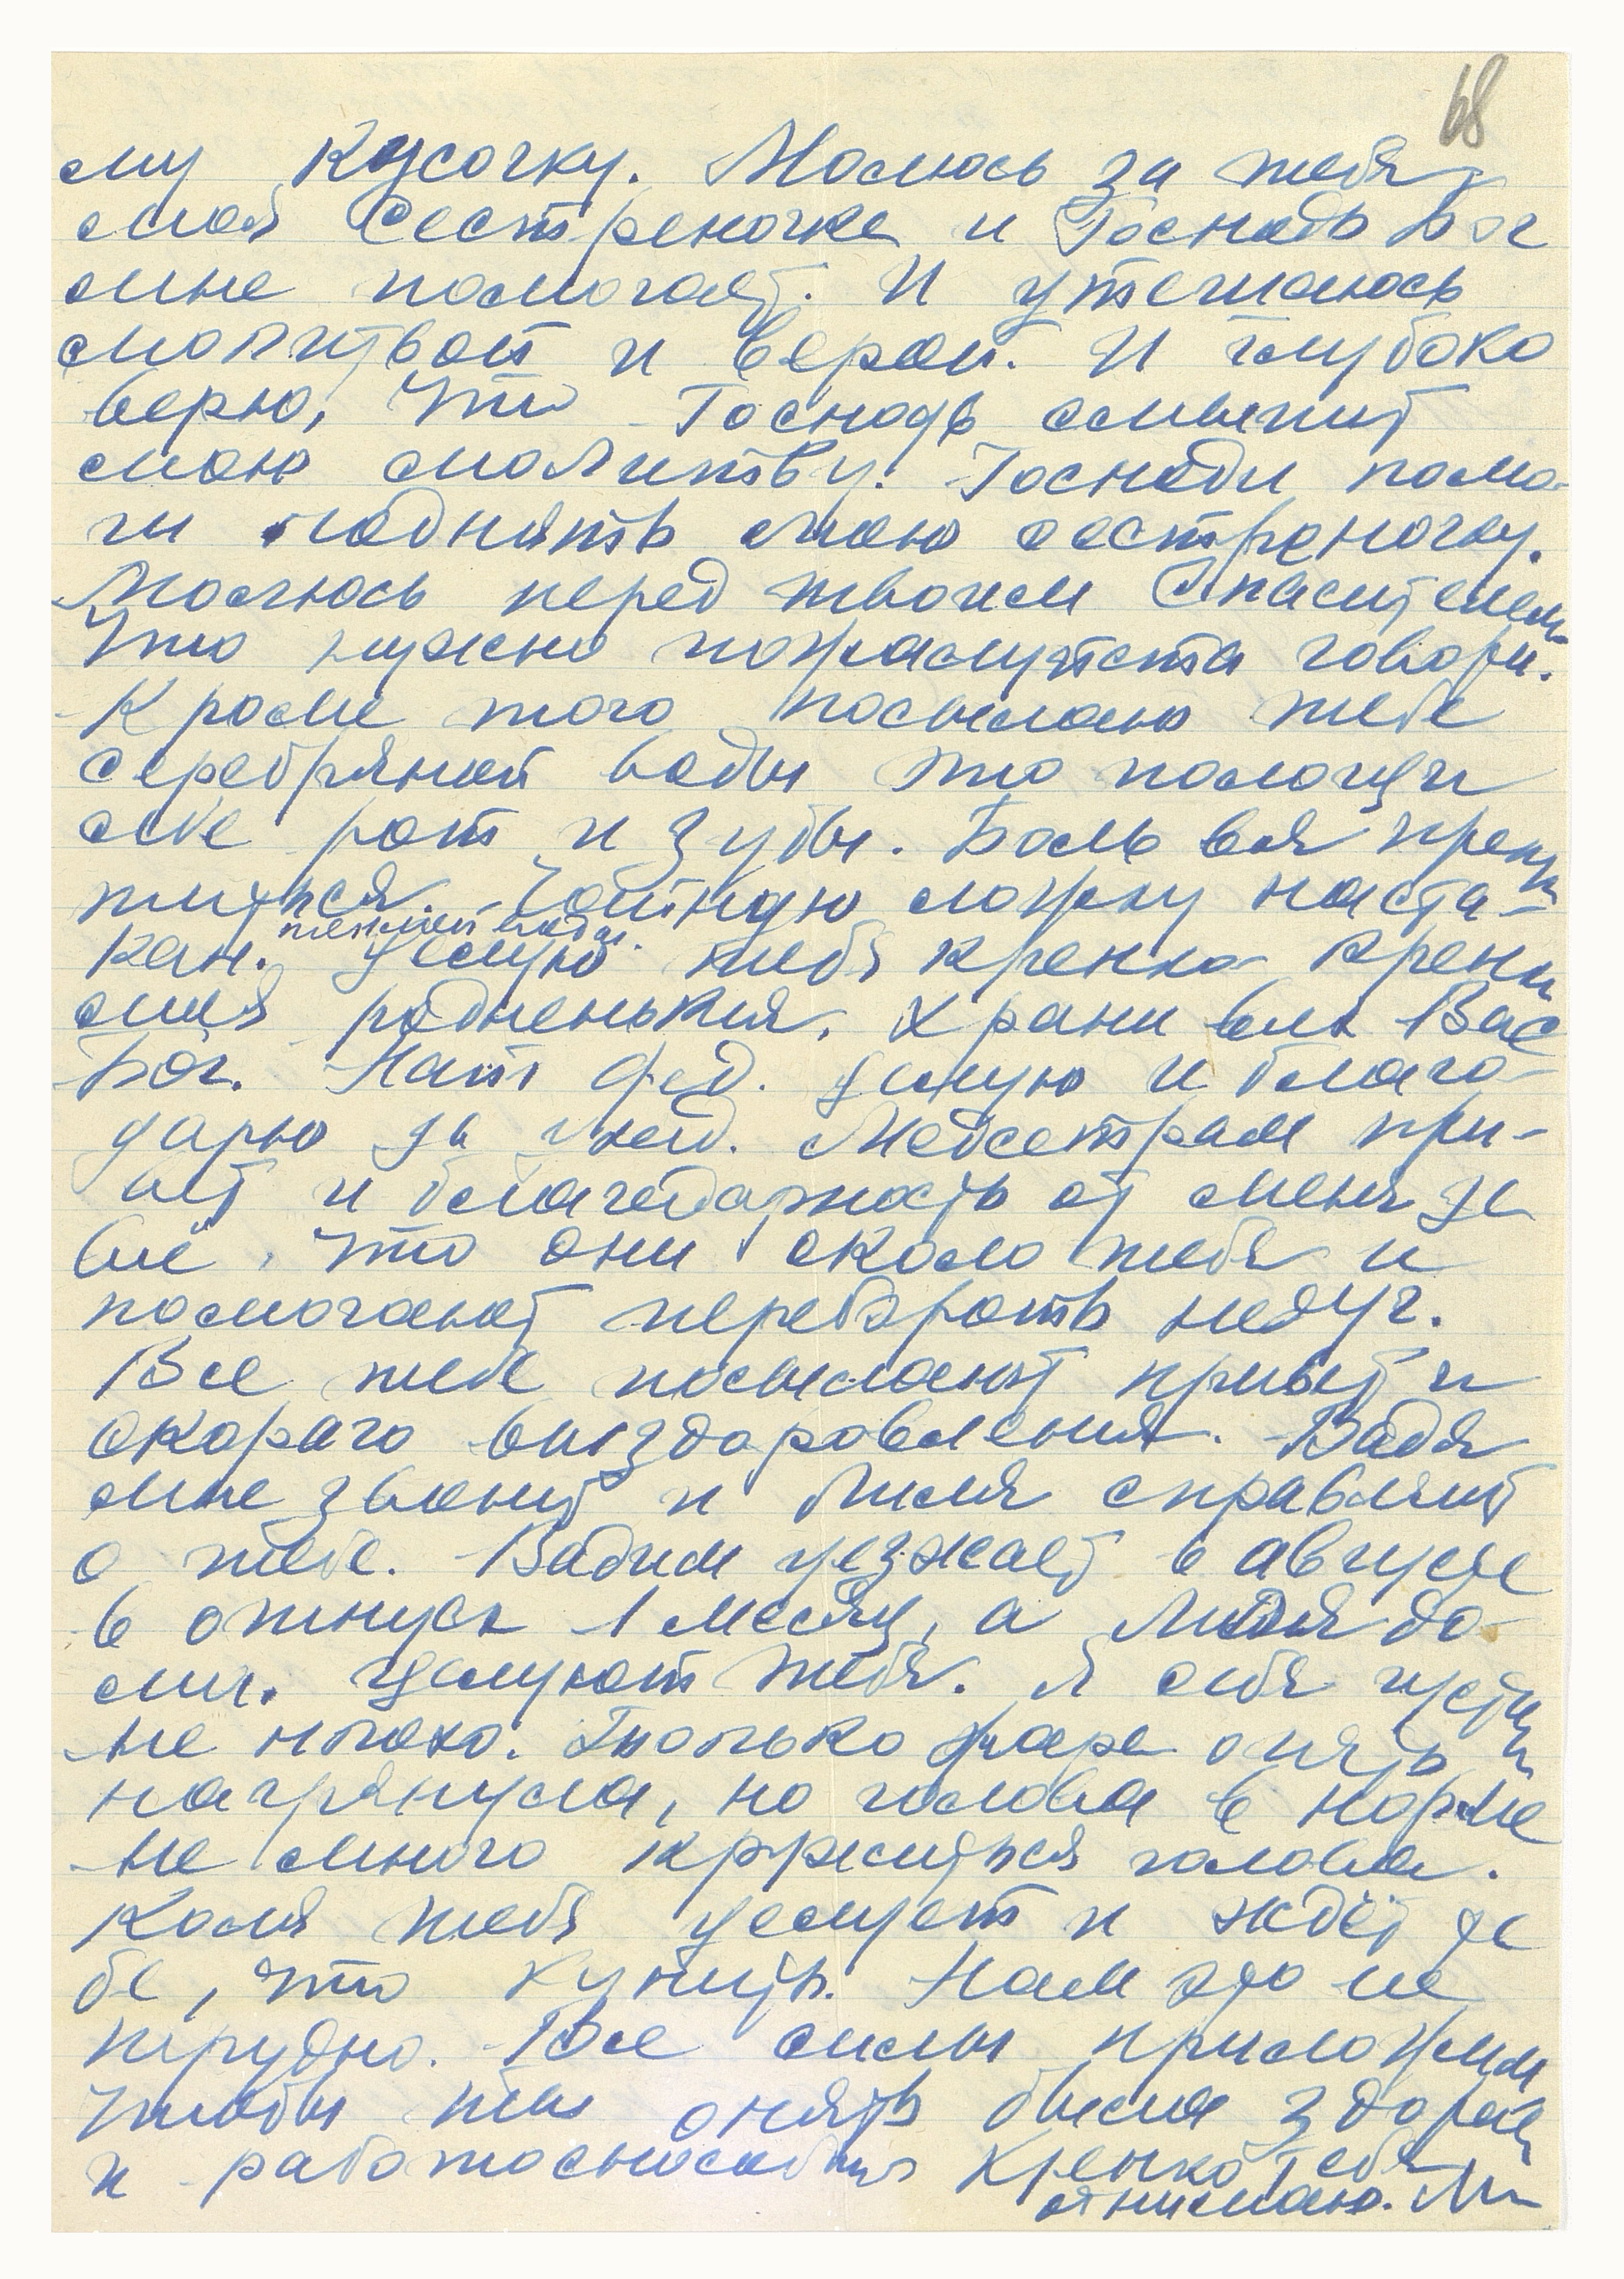 68
му кусочку. Молюсь за тебя
моя сестреночка и Господь Бог
мне помогает. И утешаюсь
молитвой и верой. И глубоко
верю, что Господь слышит
мою молитву. Господи помо-
ги поднять мою сестреночку.
Молюсь перед твоим Спасителем.
Что нужно пожалуйста говори.
Кроме того посылаю тебе
серебряной воды это полощи
себе рот и зубы. Боль вся прекра
титься. Чайную ложку на ста-
теплой воды.
кан. Целую тебя крепко крепко
моя родненькая. Храни вас Вас
Бог. Нат. Фед. целую и благо-
дарю за уход. Медсетрам при-
вет и благодарность от меня за
всё, что они около тебя и
помогают перебороть недуг.
Все тебе посылают привет и
скораго выздоровления. Вадя
мне звонит и Лиля справлят
о тебе. Вадим уезжает в августе
в отпуск 1 месяц, а Лиля до-
ма. Целуют тебя. Я себя чувст
не плохо. Только жара опять
нагрянула, но голова в норме
не много кружиться голова.
Коля тебя целует и ждёт те
бе, что купить. Нам это не
трудно. Все силы приложим
чтобы ты опять была здорова
и работоспособна Крепко тебя
отнимаю.